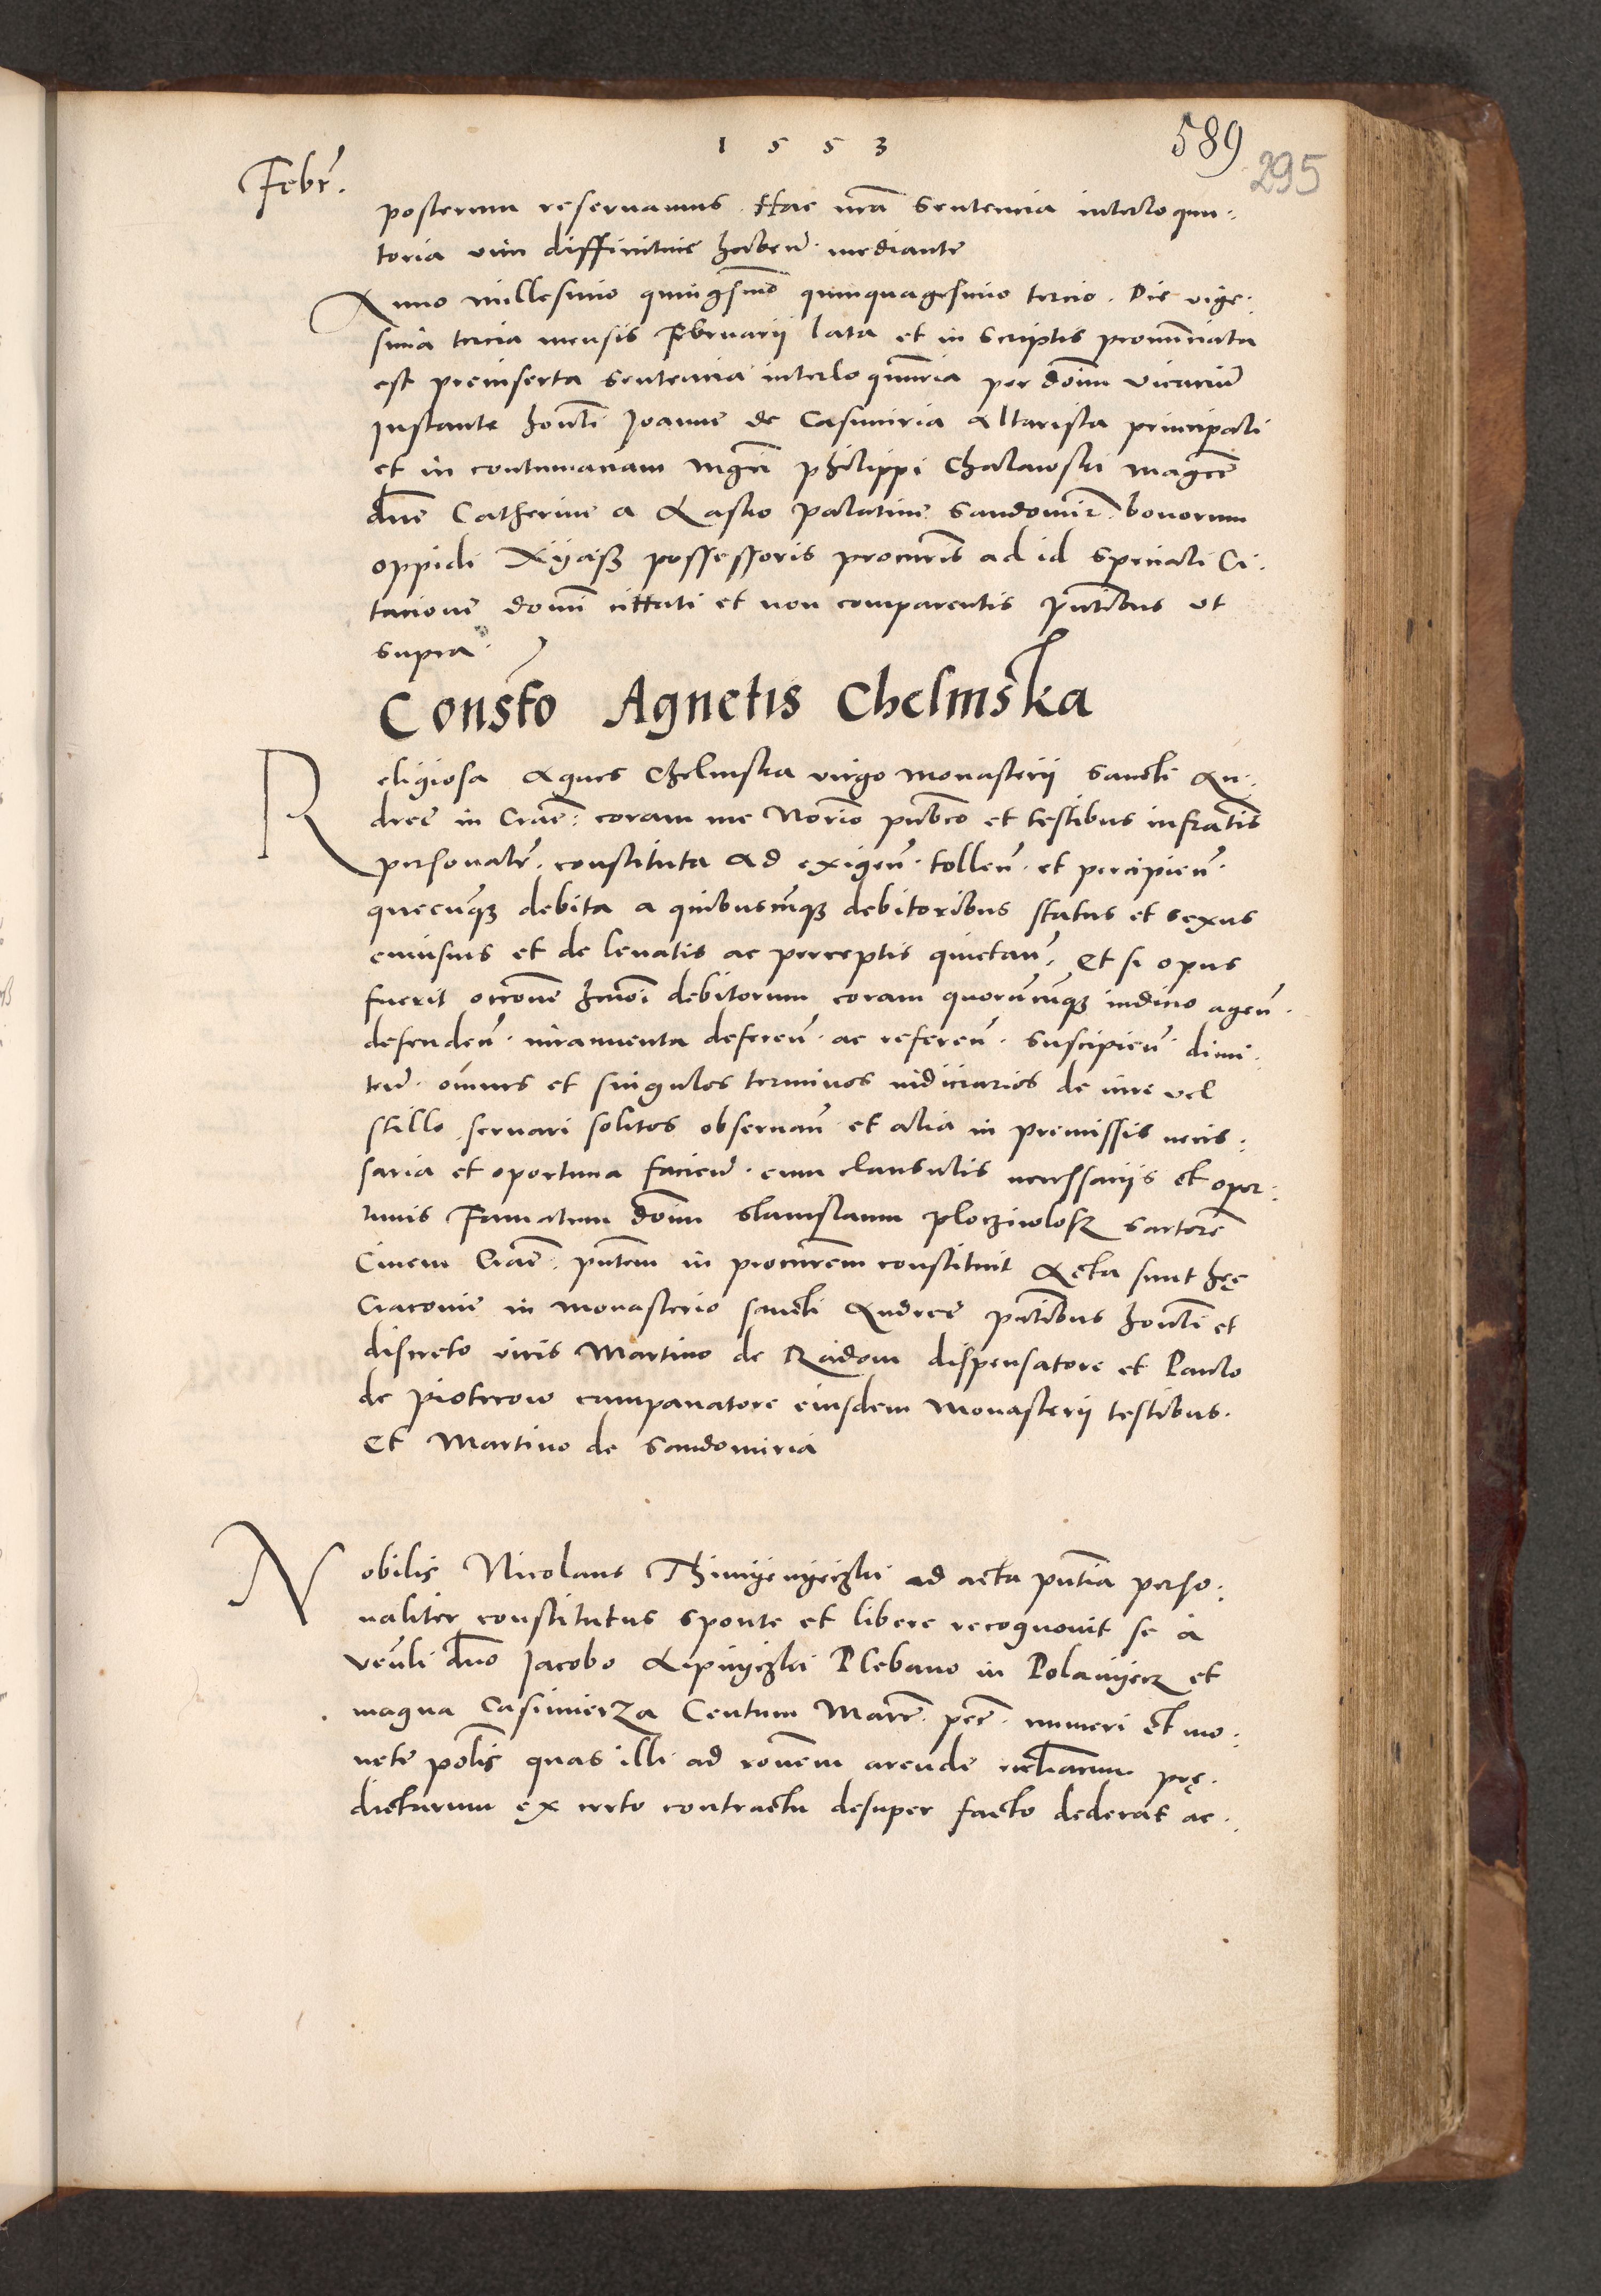 1 5 5 3
589
295
Febr.
posterum reseruamus. Hac nrã sentencia interloquu-
toria vim diffinitiue haben. mediante
Anno millesimo quingesimo quinquagesimo tercio. Die vige-
sima tercia mensis Februarij lata et in scriptis pronunciata
est preinserta sentencia interloqutoria per doim vicariũ
Instante honli Joanne de Casimiria Altarista principali
et in contumaciam Mgci Philippi Chalawski magce
dne Catherine a Lasko Palatine Sandomir. bonorum
oppidi possessoris procuris ad id speciali Ci-
tacione domi cittati et non comparentis pntibus vt
supra
Consto Agnetis Chelmska
Religiosa Agnes Chelmska virgo Monasterij Sancti An-
dree in Crac: coram me Norio pubco et testibus infratis
personalr. constituta ad exigen. tollen. et percipien.
quecunq3 debita a quibuscunq3 debitoribus status et sexus
cuiusuis et de leuatis ac perceptis quietan. et si opus
fuerit occone hmoi debitorum coram quorumcunq3 iudicio agen.
defenden. iuramenta deferen. ac referen. suscipien. dimi-
ten. omnes et singulos terminos iudiciarios de iure vel
stillo seruari solitos obseruan. et alia in premissis neces-
saria et oportuna facien. cum clausulis necessarijs et opor-
tunis Famatum doim Stanislaum sartorẽ
Ciuem Crac. pntem in procurem constituit Acta sunt hęc
Cracouie in monasterio sancti Andree pntibus honli et
discreto viris Martino de Radom dispensatore et Paulo
de Piotrcow campanatore eiusdem Monasterij testibus.
Et Martino de Sandomiria
Nobilis Nicolaus ad acta pntia perso-
naliter constitutus sponte et libere recognouit se à
venli dno Jacobo Plebano in Polaniecz et
magna Casimierza Centum Marc. pec. numeri et mo-
nete polis quas illi ad ronem arende ecliarum prę-
dictarum ex certo contractu desuper facto dederat ac-